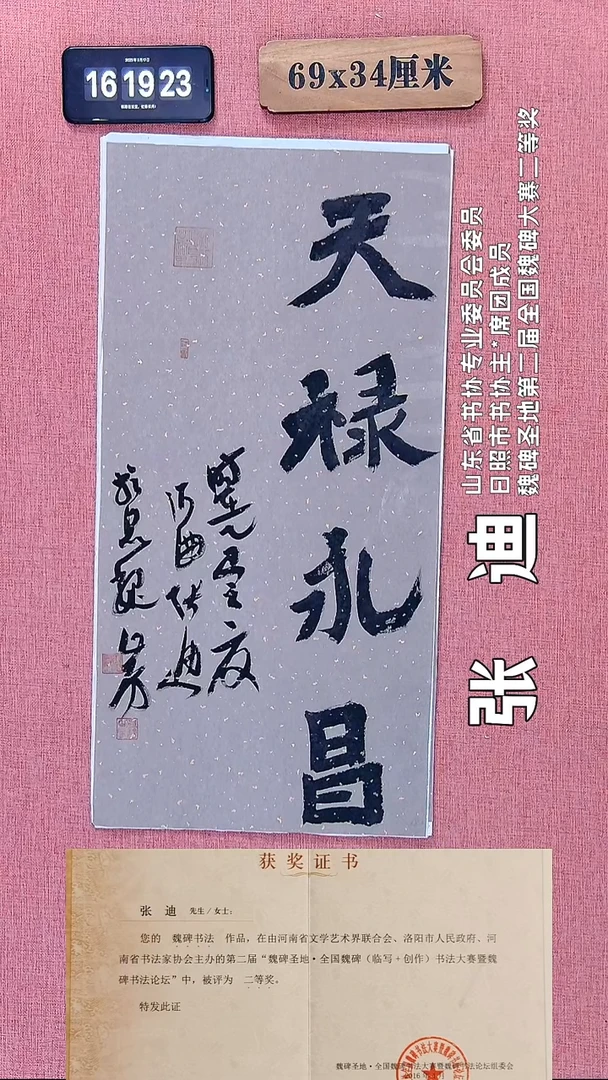 16 19 23
69x34厘米
天禄永昌
张迪
山东省书协专业委员会委员
日照市书协主*席团成员
魏碑圣地第二届全国魏碑大赛二等奖
获奖证书
张 迪 先生/女士:
您的 魏碑书法 作品，在由河南省文学艺术界联合会、洛阳市人民政府、河
南省书法家协会主办的第二届“魏碑圣地·全国魏碑（临写+创作）书法大赛暨魏
碑书法论坛”中，被评为 二等奖。
特发此证
魏碑圣地·全国魏碑书法大赛暨魏碑书法论坛组委会